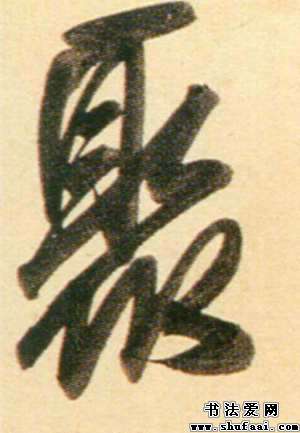 聚
书法爱网
www.shufaai.com